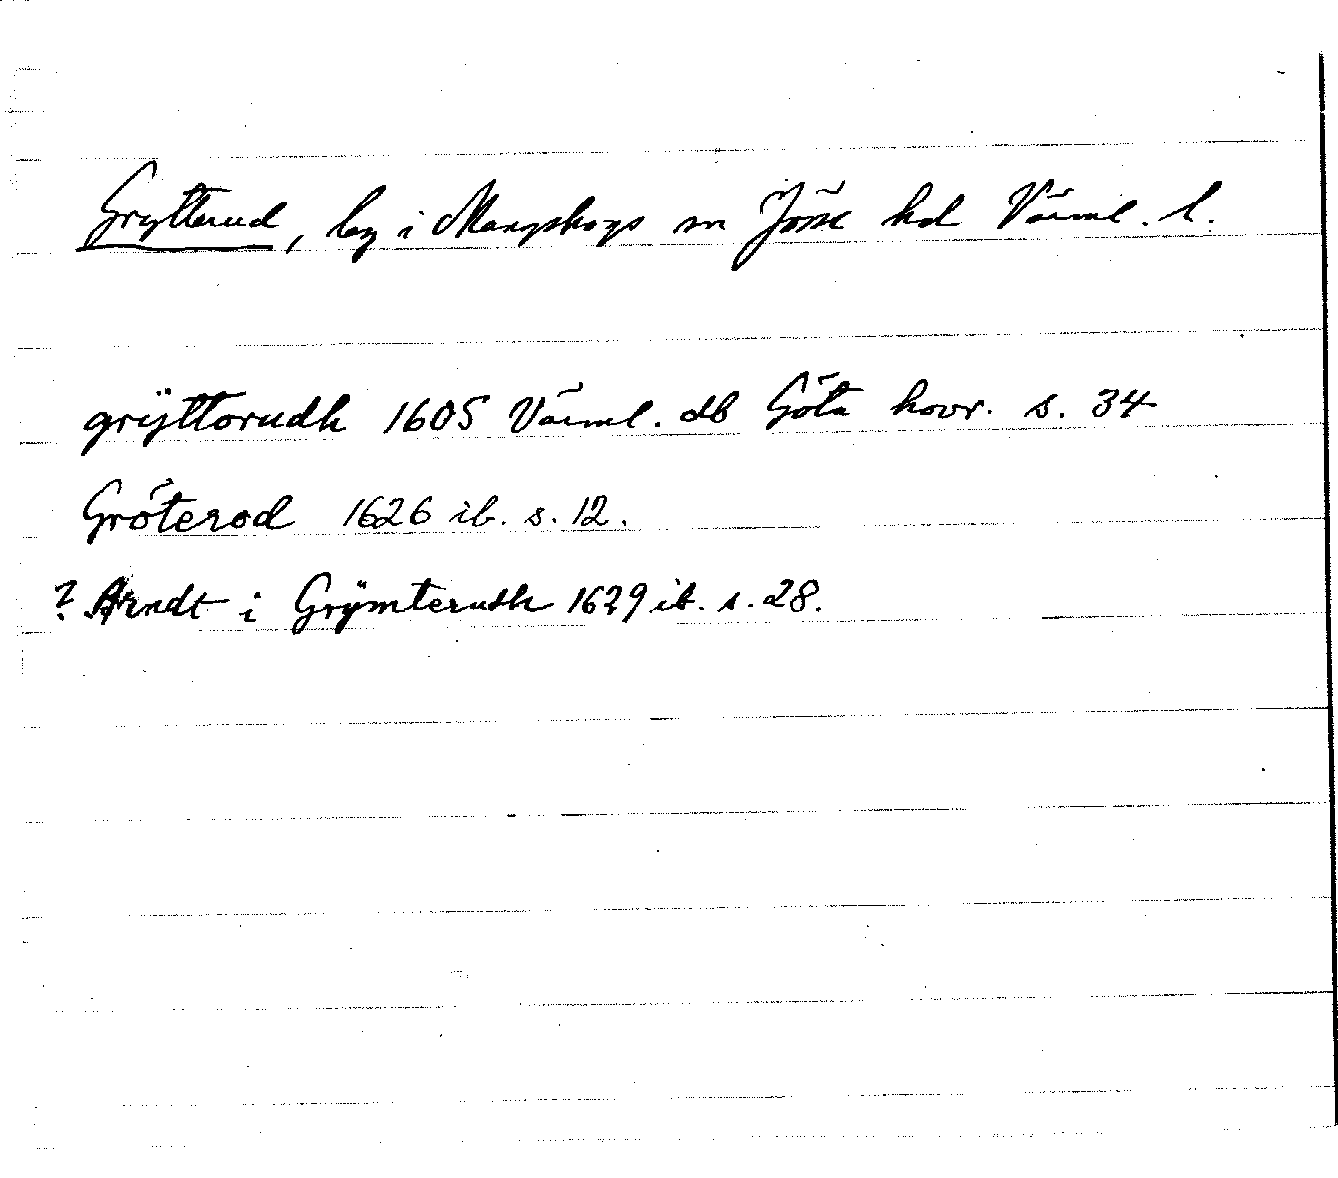 Grytterud, by i Mangskogs sn Jösse hd Värml. l.
grÿttorudh 1605 Värml. db Göta hovr. s. 34
Gröterod 1626 ib. s. 12.
? Arndt i Grÿmterudh 1629 ib. s. 28.